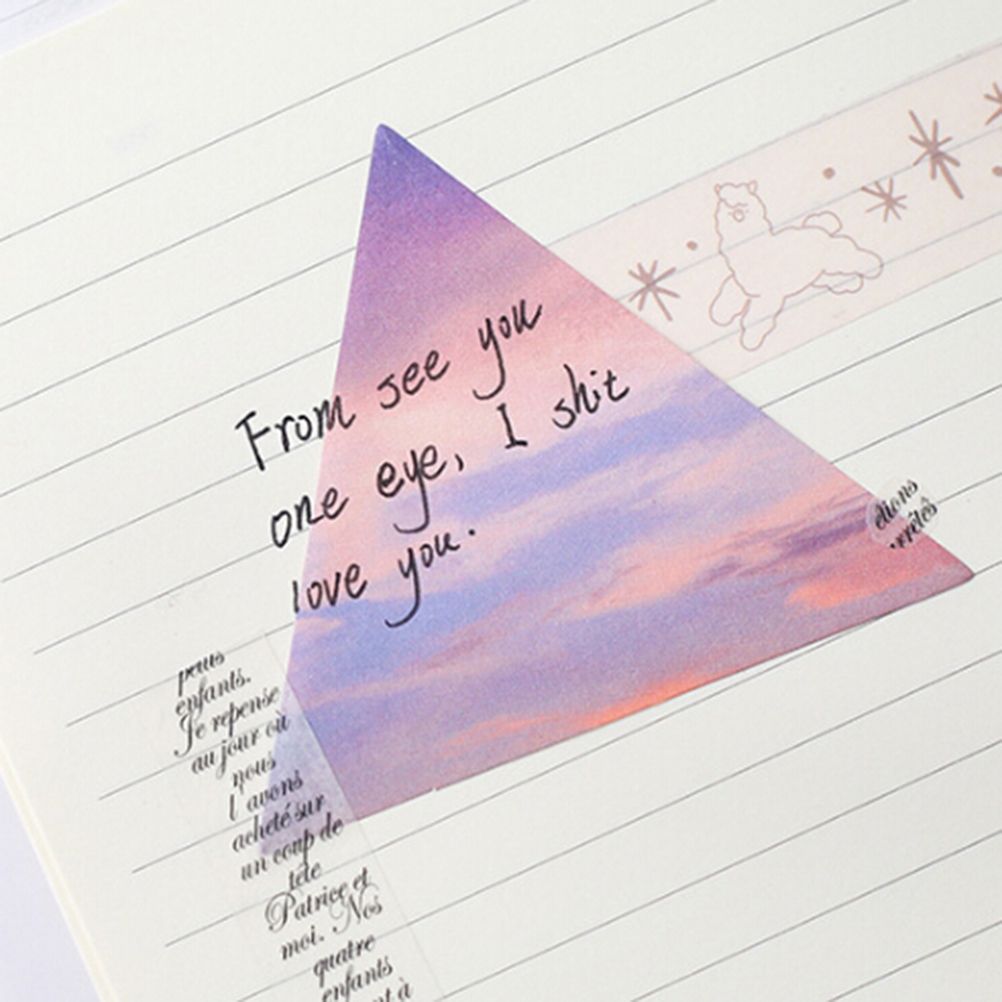 From see you
one eye, I shit
love you.
enfants.
Je repense
au jour où
nous
l'avons
acheté sur
un coup de
tête
Patrice et
moi. Nos
quatre
enfants